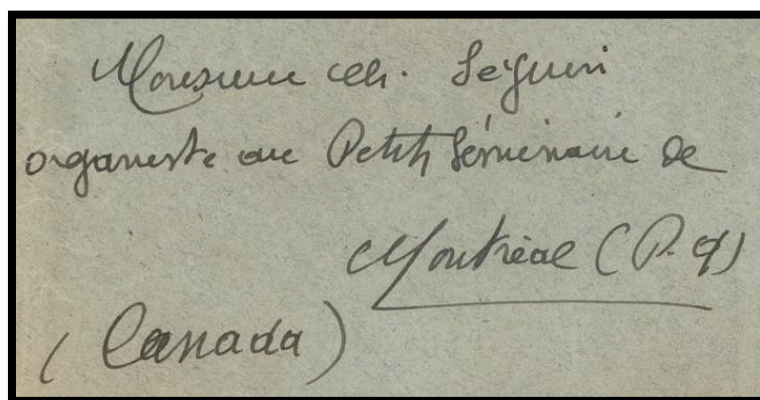 Monsieur Ch. Séguin
organiste au Petit Séminaire de
Montréal (P. Q)
(Canada)